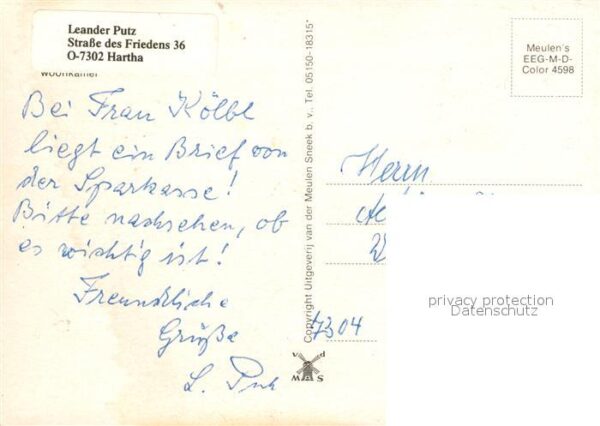 Leander Putz
Straße des Friedens 36
O-7302 Hartha
woonkamer
Bei Frau Kölbl
liegt ein Brief von
der Sparkasse!
Bitte nachsehen, ob
es wichtig ist!
Freundliche
Grüße
L. Putz
Copyright Uitgeverij van der Meulen Sneek b. v., Tel. 05150-18315*
v d
M S
Meulen's
EEG-M-D-
Color 4598
Herrn
7304
privacy protection
Datenschutz